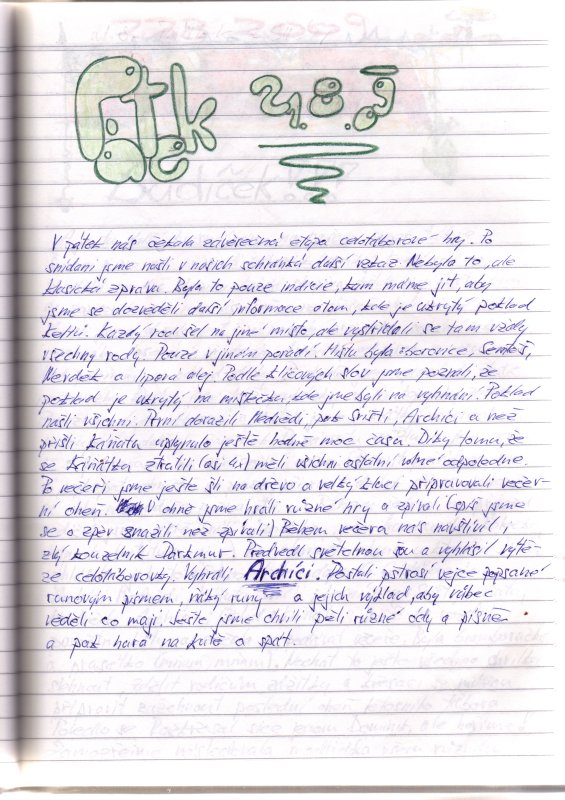 Pátek 21.8.09
V pátek nás čekala závěrečná etapa celotáborové hry. Po
snídani jsme našli v našich schránká další vzkaz. Nebyla to, ale
klasická zpráva. Byla to pouze indicie, kam máme jít, aby
jsme se dozvěděli další informace otom, kde je ukrytý poklad
Keltů. Každý rod šel na jiné místo, ale vystřídali se tam vždy
všechny rody. Pouze v jiném pořadí. Místa byla borovice, Seník,
Medvěk a lipová alej. Podle klíčových slov jme poznali, že
poklad je ukrytý na místečku, kde jme byli na vyhnání. Poklad
našli všichni. První dorazili Medvědi, pak Svišti, Archíci a než
přišli Káňata uplynulo ještě hodně moc času. Díky tomu, že
se Káňátka ztratili (asi 4x) měli všichni ostatní volné odpoledne.
Po večeři jsme ještě šli na dřevo a velký kluci připravovali večer-
ní oheň. V ohně jsme hráli různé hry a zpívali (spíš jsme
se o zpěv snažili než zpívali) Během večera nás navštívil i
zlý kouzelník Darkmur. Předvedl světelnou šou a vyhlásil vítě-
ze celotáborovky. Vyhráli Archíci. Dostali pštrosí vejce popsané
runovým písmem, nějaký runy a jejich výklad, aby vůbec
věděli co mají. Ještě jsme chvíli pěli různé ódy a písně
a pak hurá na kutě a spát.